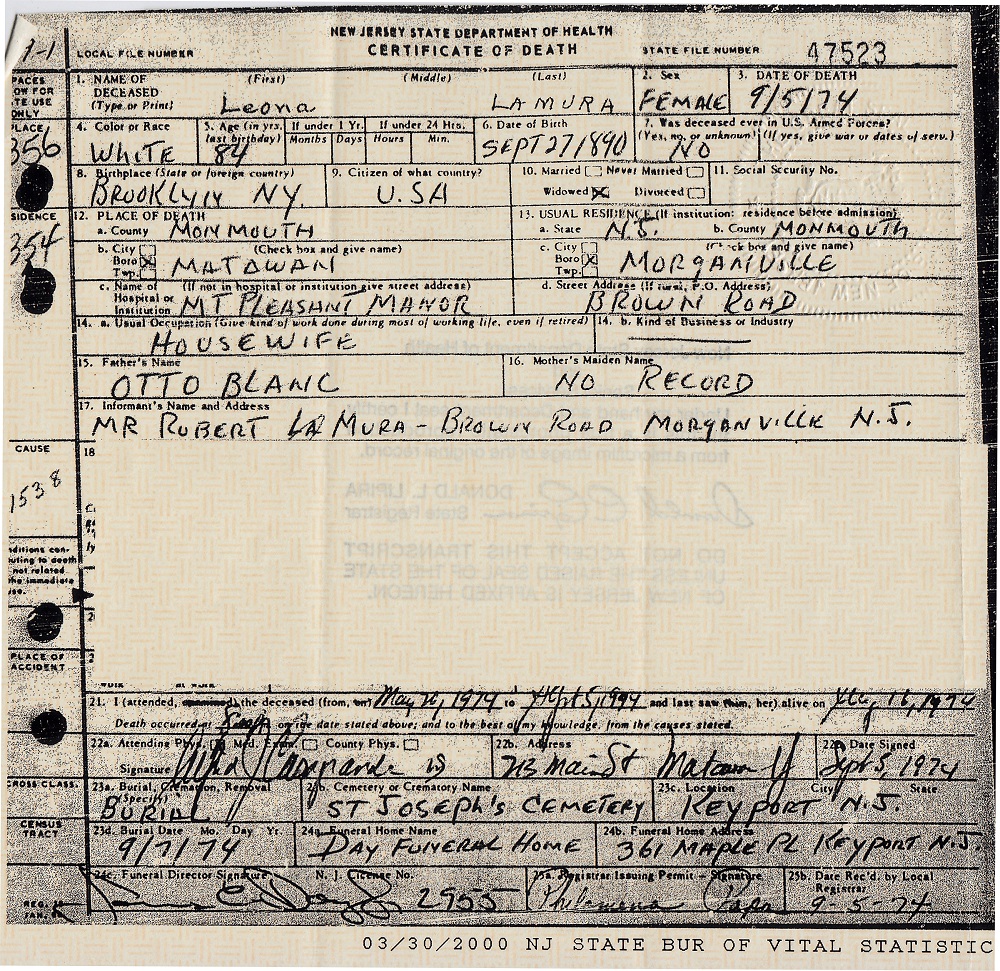 NEW JERSEY STATE DEPARTMENT OF HEALTH
LOCAL FILE NUMBER CERTIFICATE OF DEATH STATE FILE NUMBER 47523
1. NAME OF DECEASED (Type or Print) (First) (Middle) (Last) Leona LAMURA
2. Sex FEMALE
3. DATE OF DEATH 9/5/74
PLACE
356
4. Color or Race WHITE
5. Age (in yrs. last birthday) 84 If under 1 Yr. Months Days If under 24 Hrs. Hours Min.
6. Date of Birth SEPT 27 1890
7. Was deceased ever in U.S. Armed Forces? (Yes, no, or unknown) (If yes, give war or dates of serv.) NO
8. Birthplace (State or foreign country) BROOKLYN NY.
9. Citizen of what country? U.S.A
10. Married Never Married Widowed Divorced
11. Social Security No.
SIDENCE
354
12. PLACE OF DEATH
a. County MONMOUTH
b. City Boro Twp. (Check box and give name) MATAWAN
c. Name of Hospital or Institution (If not in hospital or institution give street address) MT PLEASANT MANOR
13. USUAL RESIDENCE (If institution: residence before admission)
a. State N.J. b. County MONMOUTH
c. City Boro Twp. box and give name) MORGANVILLE
d. Street Address (If rural, P.O. Address) BROWN ROAD
14. a. Usual Occupation (Give kind of work done during most of working life, even if retired) HOUSEWIFE
14. b. Kind of Business or Industry
15. Father's Name OTTO BLANC
16. Mother's Maiden Name NO RECORD
17. Informant's Name and Address
MR ROBERT LA MURA - BROWN ROAD MORGANVILLE N.J.
CAUSE
18
1538
ditions con-
uting to death
not related
he immediate
PLACE OF
ACCIDENT
21. I (attended, the deceased (from, May 20, 1974 to Sept 5, 1974 and last saw her) alive on 16, 1974
Death occurred at on the date stated above; and to the best of my knowledge, from the causes stated.
22a. Attending Phys. Med. Exam. County Phys.
Signature
22b. Address 213 Main St
22c. Date Signed Sept 5, 1974
CROSS CLASS.
23a. Burial, Cremation, Removal (Specify) BURIAL
23b. Cemetery or Crematory Name ST JOSEPH'S CEMETERY
23c. Location City State KEYPORT N.J.
CENSUS
TRACT
23d. Burial Date Mo. Day Yr. 9/7/74
24a. Funeral Home Name DAY FUNERAL HOME
24b. Funeral Home Address 361 MAPLE PL KEYPORT N.J.
24c. Funeral Director Signature N. J. License No. 2955
25a. Registrar Issuing Permit - Signature Philomena
25b. Date Rec'd. by Local Registrar 9-5-74
03/30/2000 NJ STATE BUR OF VITAL STATISTIC